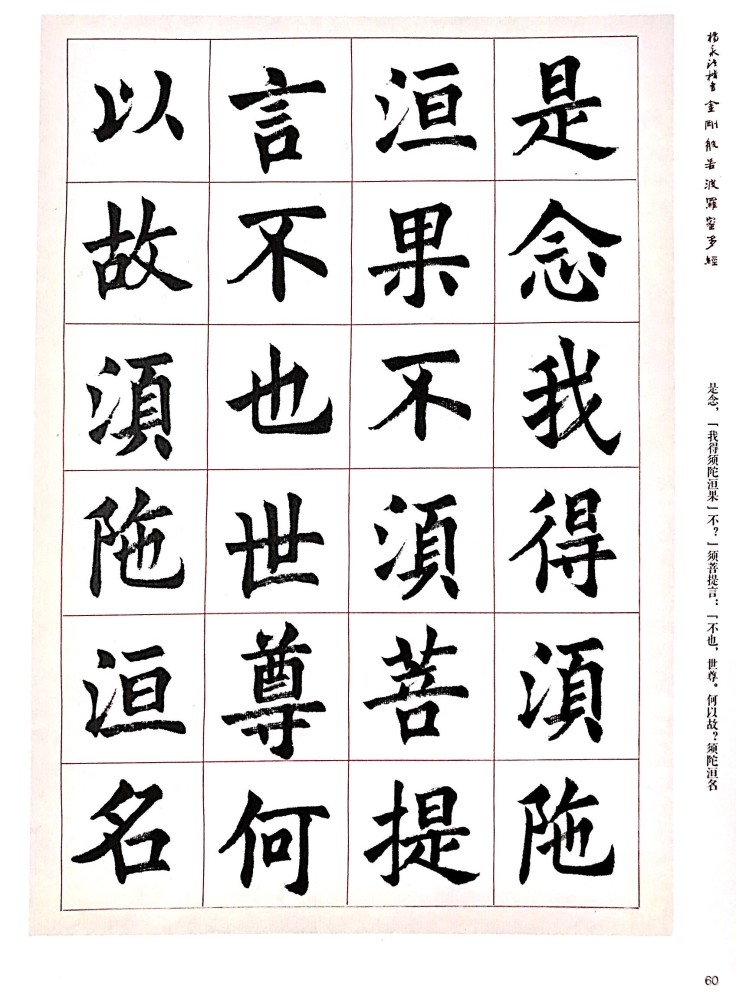 杨永法楷书 金剛般若波羅蜜多經
是念我得須陁
洹果不須菩提
言不也世尊何
以故須陁洹名
是念，「我得须陀洹果」不？」须菩提言：「不也，世尊。何以故？须陀洹名
60